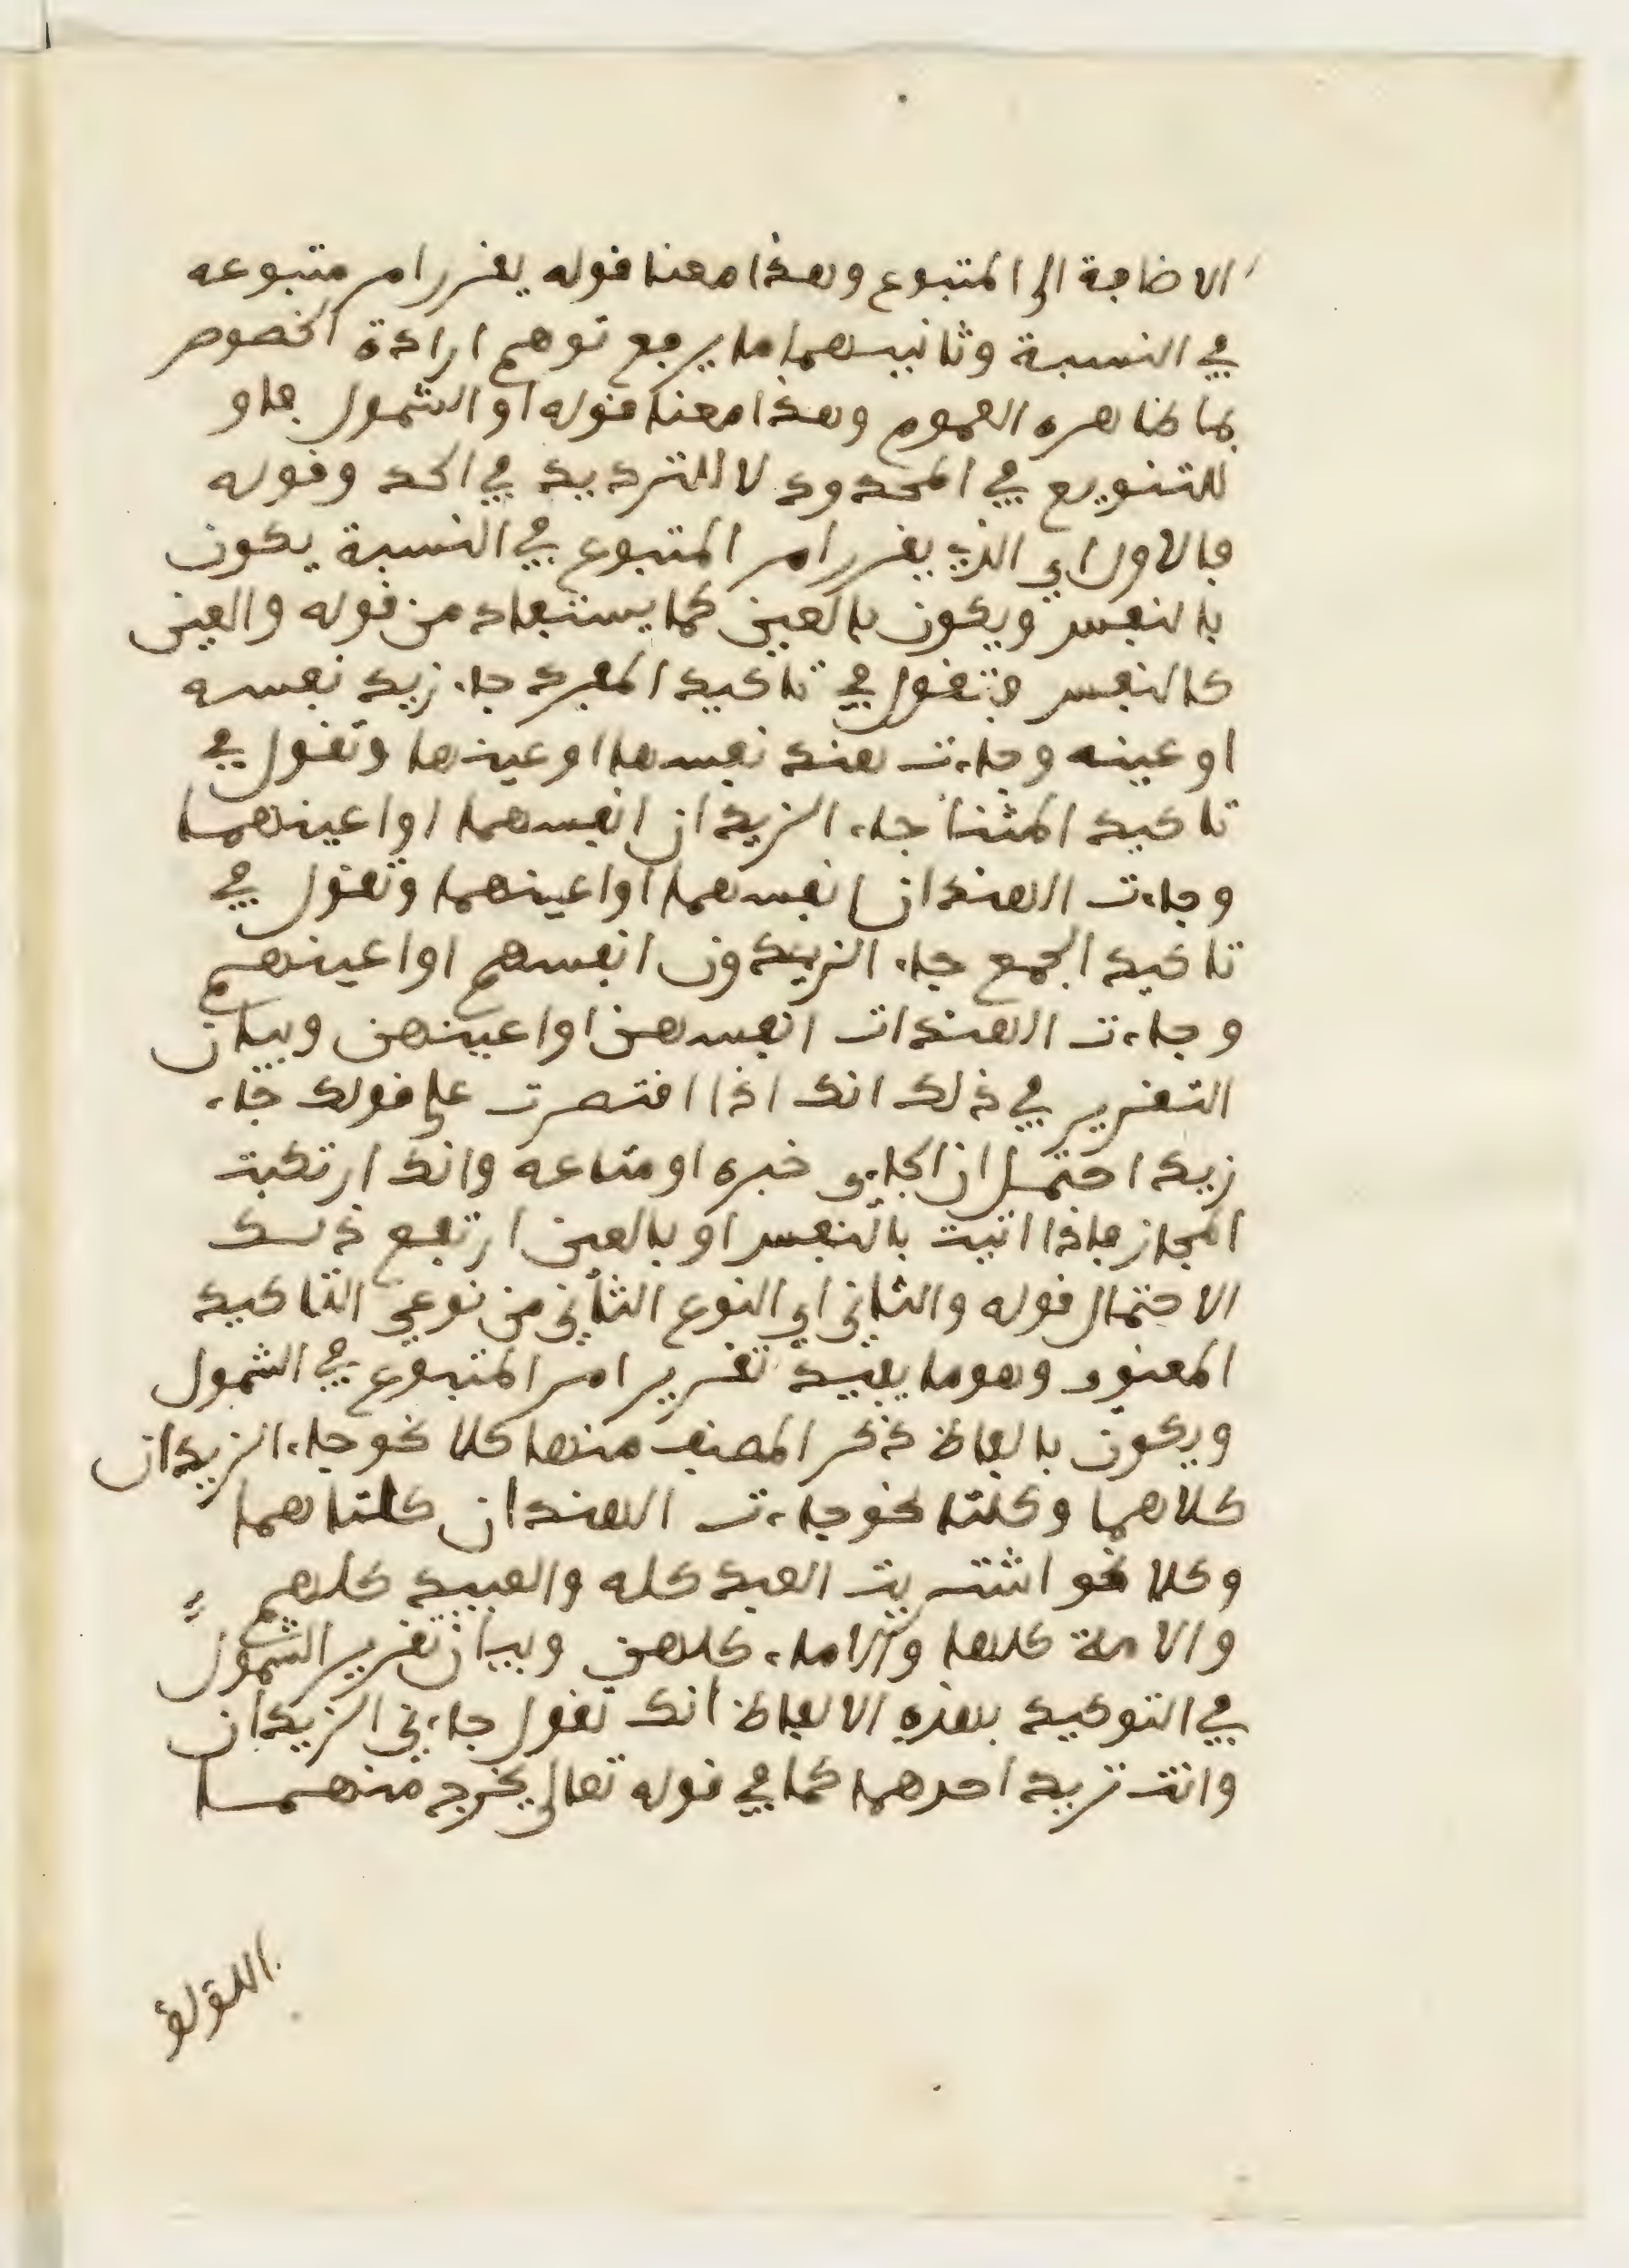 الاضافة الى المتبوع وهذا معنا قوله يقرر امر متبوعه
في النسبة وثانيهما ما يرفع توهم ارادة الخصوص
بما ظاهره العموم وهذا معنا قوله او الشمول فاو
للتنويع في المحدود لا للترديد في الحد وقوله
فالاول اي الذي يقرر امر المتبوع في النسبة يكون
بالنفس ويكون بالعين كما يستفاد من قوله والعين
كالنفس فتقول في تاكيد المفرد جاء زيد نفسه
او عينه وجاءت هند نفسها او عينها وتقول في
تاكيد المثنا جاء الزيدان انفسهما او اعينهما
وجاءت الهندان انفسهما او اعينهما وتقول في
تاكيد الجمع جاء الزيدون انفسهم او اعينهم
وجاءت الهندات انفسهن او اعينهن وبيان
التقرير في ذلك انك اذا اقتصرت على قولك جاء
زيد احتمل ان الجاءي خبره او متاعه وانك ارتكبت
المجاز فاذا اتيت بالنفس او بالعين ارتفع ذلك
الاحتمال قوله والثاني اي النوع الثاني من نوعي التاكيد
المعنوي وهو ما يفيد تقرير امر المتبوع في الشمول
ويكون بالفاظ ذكر المصنف منها كلا نحو جاء الزيدان
كلاهما وكلتا نحو جاءت الهندان كلتاهما
وكلا نحو اشتريت العبد كله والعبيد كلهم
والامة كلها والاماء كلهن وبيان تقرير الشمول
في التوكيد بهذه الالفاظ انك تقول جاءني الزيدان
وانت تريد احدهما كما في قوله تعالى يخرج منهما
اللؤلؤ